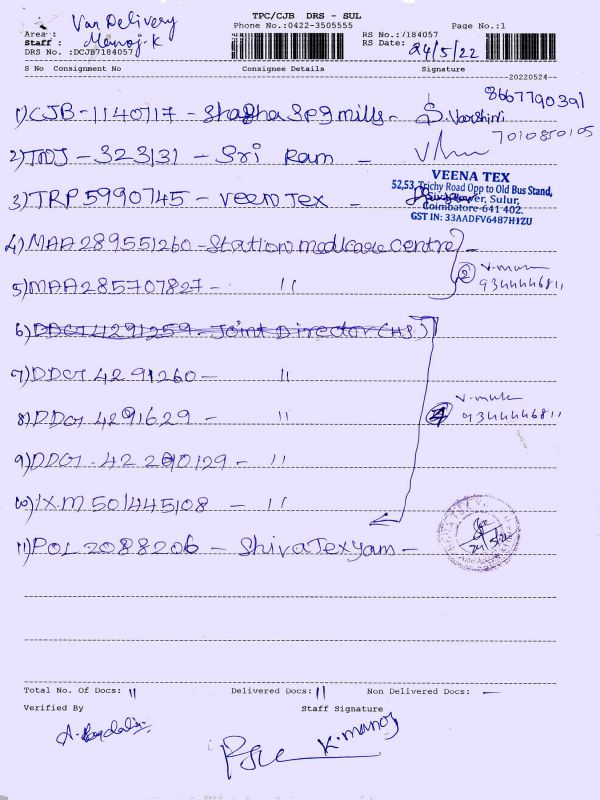 TPC/CJB DRS - SUL
Van Delivery
Phone No.:0422-3505555
Page No.:1
Area :
RS No.:/184057
Staff : Manoj.K
RS Date: 24/5/22
DRS No. :DCJB7184057
S No Consignment No Consignee Details Signature
20220524
8667790391
1) CJB - 1140717 - Shabha Spg mills - S. Varshini
7010850105
2) TNJ - 323131 - Sri Ram -
VEENA TEX
52,53, Trichy Road Opp to Old Bus Stand,
3) TRP 5990745 - Veena Tex -
Sulur,
Coimbatore-641 402.
GST IN: 33AADFV6487H1ZU
4) MAA 289551260 - Station medicare centre -
2
5) MAA 285707827 - "
9344446811
6) DDGT 4291259 - Joint Director (HS)
7) DDGT 4291260 - "
8) DDGT 4291629 - "
4
9344446811
9) DDGT - 42290129 - "
10) IXM 501445108 - "
11) POL 2088206 - Shiva Tex yarn -
24/5/22
Total No. Of Docs: 11 Delivered Docs: 11 Non Delivered Docs: -
Verified By Staff Signature
K. manoj